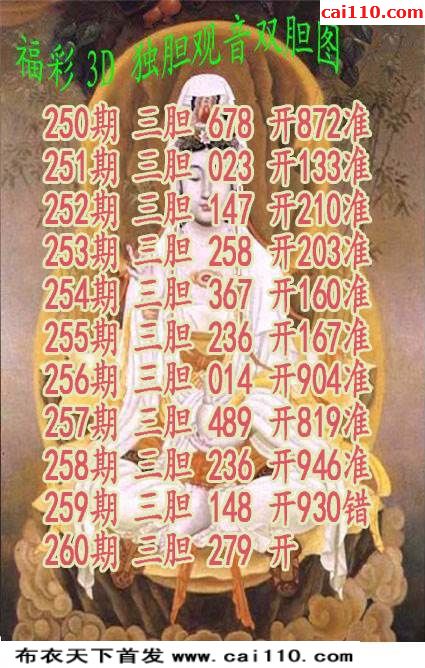 cai110.com
福彩3D 独胆观音双胆图
250期 三胆 678 开872准
251期 三胆 023 开133准
252期 三胆 147 开210准
253期 三胆 258 开203准
254期 三胆 367 开160准
255期 三胆 236 开167准
256期 三胆 014 开904准
257期 三胆 489 开819准
258期 三胆 236 开946准
259期 三胆 148 开930错
260期 三胆 279 开
布衣天下首发 www.cai110.com